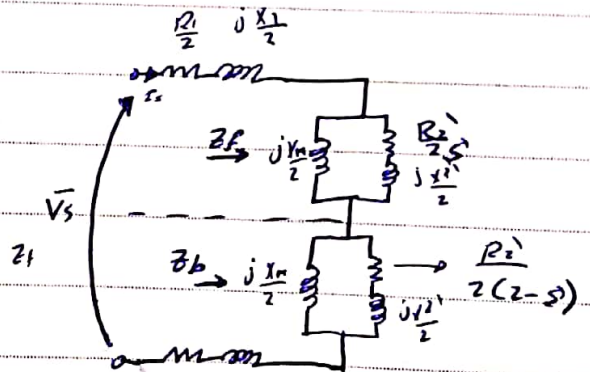 R1/2 j X1/2
Is
Zf j Xm/2 R2'/2S
j X2'/2
Vs
Z1
Zb j Xm/2 R2'/2(2-S)
j X2'/2